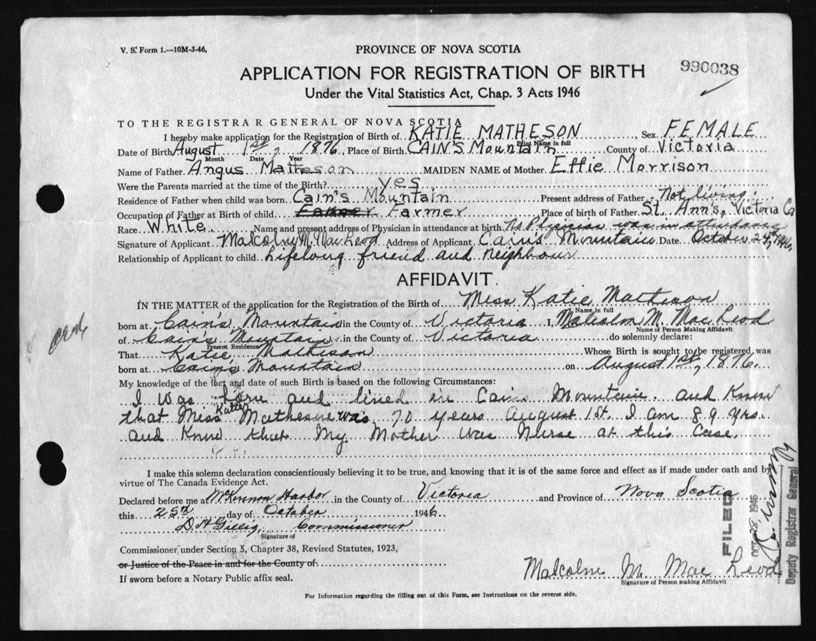 V. S. Form 1.—10M-3-46.
PROVINCE OF NOVA SCOTIA
APPLICATION FOR REGISTRATION OF BIRTH
990038
Under the Vital Statistics Act, Chap. 3 Acts 1946
TO THE REGISTRAR GENERAL OF NOVA SCOTIA
I hereby make application for the Registration of Birth of KATIE MATHESON Sex FEMALE
Print Name in full
Date of Birth August 1st, 1876, Place of Birth CAIN'S Mountain County of Victoria
Month Date Year
Name of Father Angus Matheson MAIDEN NAME of Mother Effie Morrison
Were the Parents married at the time of the Birth? yes
Residence of Father when child was born Cain's Mountain Present address of Father Not living.
Occupation of Father at Birth of child Farmer Farmer Place of birth of Father St. Ann's, Victoria Co
Race White Name and present address of Physician in attendance at birth No Physician was in attendance
Signature of Applicant Malcolm M. MacLeod Address of Applicant Cain's Mountain Date October 24th, 1946
Relationship of Applicant to child Lifelong friend and Neighbour
AFFIDAVIT.
IN THE MATTER of the application for the Registration of the Birth of Miss Katie Matheson
Name in full
born at Cain's Mountain in the County of Victoria I, Malcolm M. MacLeod
Name of Person Making Affidavit
of Cain's Mountain in the County of Victoria do solemnly declare:
Present Residence
That Katie Matheson Whose Birth is sought to be registered was
born at Cains Mountain on August 1st, 1876.
My knowledge of the fact and date of such Birth is based on the following Circumstances:
I was born and lived in Cains Mountain. and Know
that Miss Katie Matheson was 70 years August 1st. I am 89 yrs.
and Know that My Mother was Nurse at this Case.
I make this solemn declaration conscientiously believing it to be true, and knowing that it is of the same force and effect as if made under oath and by
virtue of The Canada Evidence Act.
Declared before me at McKinnon Harbor in the County of Victoria and Province of Nova Scotia
this 25th day of October 1946
Commissioner
Signature of
Commissioner under Section 5, Chapter 38, Revised Statutes, 1923,
or Justice of the Peace in and for the County of
If sworn before a Notary Public affix seal.
Malcolm M. Mac Leod
Signature of Person making Affidavit
FILED
OCT 30 1946
Deputy Registrar General
For Information regarding the filling out of this Form, see Instructions on the reverse side.